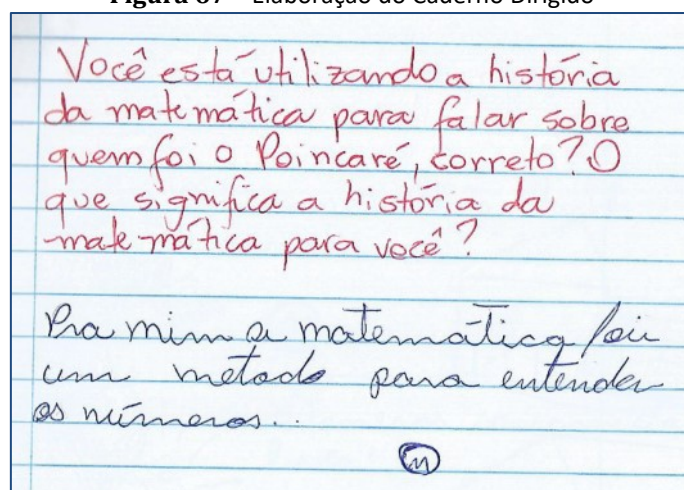 Figura 87 – Elaboração do Caderno Dirigido
Você está utilizando a história
da matemática para falar sobre
quem foi o Poincaré, correto? O
que significa a história da
matemática para você?
Pra mim a matemática foi
um metodo para entender
os números...
m